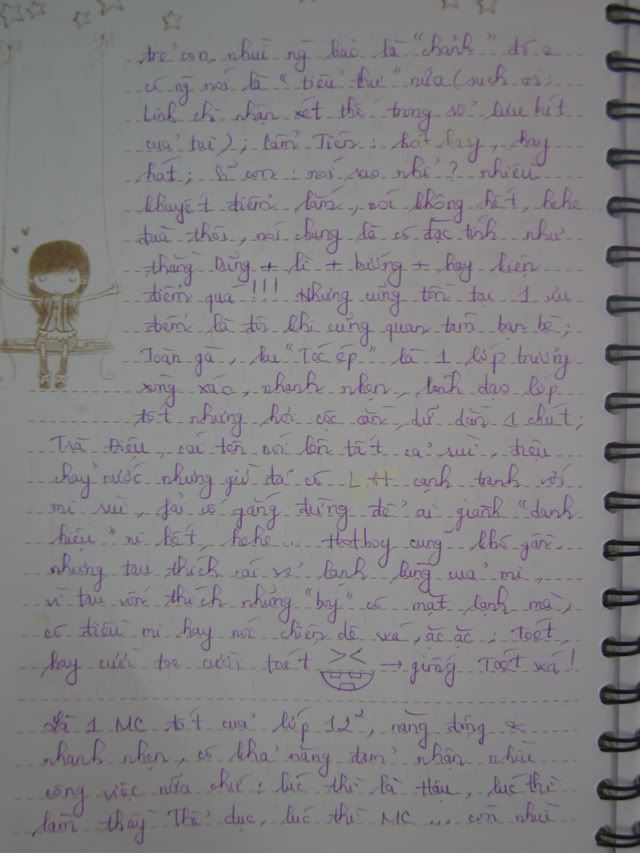 trẻ con nhưng ng bảo là "chảnh" đó
có ng nói là "tiểu thư" nữa (such as:
Linh chi nhận xét thế trong sổ lưu bút
của tui); Cẩm Tiên: hát hay, hay
hát; con: nói sao nhỉ? nhiều
khuyết điểm lắm, nói không hết, hehe
đùa thôi, nói chung là có đặc tính như
thẳng + lì + bướng + hay kiếm
điểm quá!!! Nhưng cũng tồn tại 1 ưu
điểm là đôi khi cũng quan tâm bạn bè;
Toàn gà, "Tóc ép" là 1 lớp trưởng
xông xáo, nhanh nhẹn, lãnh đạo lớp
tốt nhưng hơi cộc cằn, dữ dằn 1 chút;
Trà Điệu, cái tên nói lên tất cả rùi, điệu
chảy nước nhưng giờ đã có L.H cạnh tranh với
mi rùi, cố gắng đừng để ai giành "danh
hiệu" ni hết, hehe... Hotboy cung khó gần
nhưng tau thích cái vẻ lạnh lùng của mi,
vì tau vốn thích những "boy" có mặt lạnh mà,
có điều mi hay nói chiện dễ xá, ặc ặc; Toét,
hay cười toe cười toét >< → giống Toét xá!
Là 1 MC tốt của lớp 12², năng động &
nhanh nhẹn, có khả năng đảm nhận nhìu
công việc nữa chứ: lúc thì là Hậu, lúc thì
làm thầy Thể dục, lúc thì MC... còn nhìu